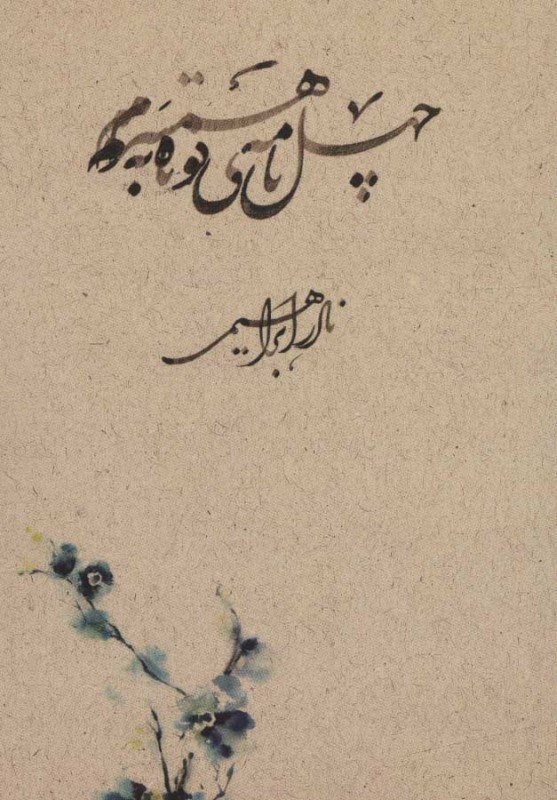 چهل نامه‌ی کوتاه به همسرم
نادر ابراهیمی